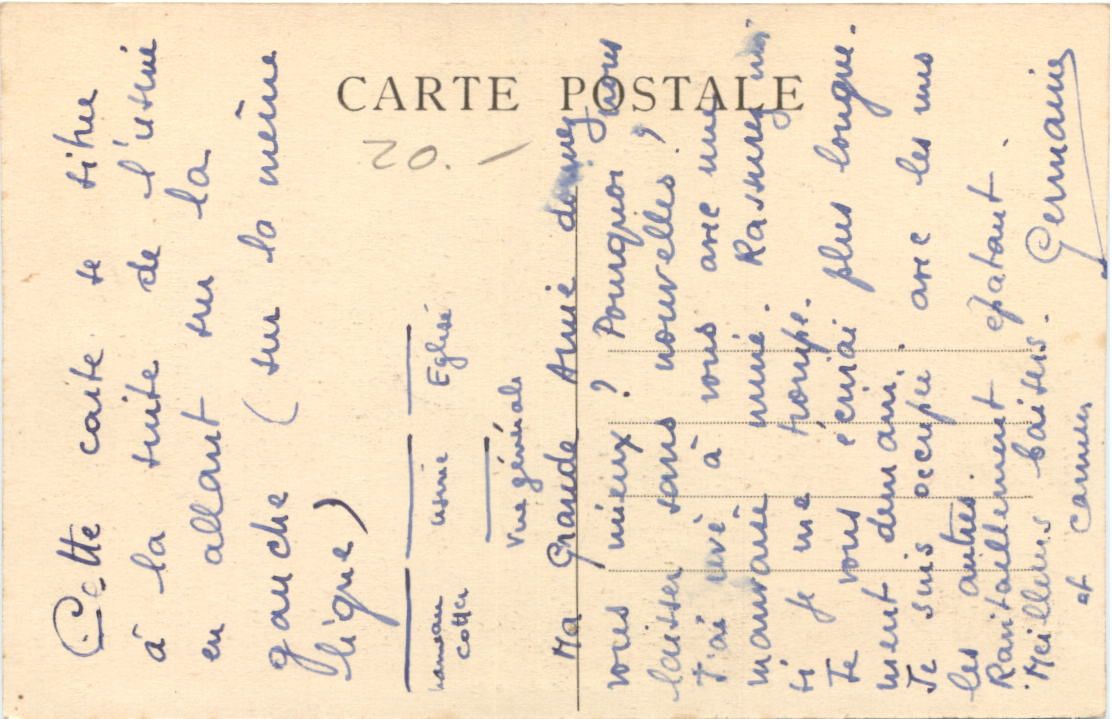 CARTE POSTALE
20.-
Cette carte se situe
à la suite de l'usine
en allant sur la
gauche (sur la même
ligne)
usine Eglise
Vue générale
Ma Grande Amie donnez nous
vous mieux ? Pourquoi nous
laisser sans nouvelles ?
J'ai rêvé à vous avec une
mauvaise mine. Rassurez moi
si je me trompe.
Je vous écrirai plus longue-
ment demain.
Je suis occupée avec les uns
les autres.
Ravitaillement épatant.
Meilleurs baisers. Germaine
et